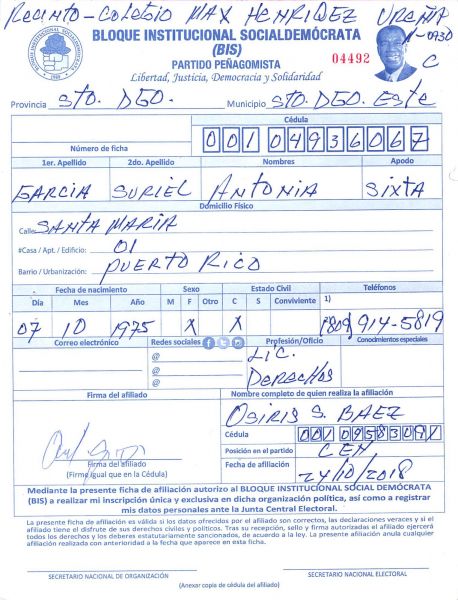 Recinto-Colegio MAX HENRIQEZ UREÑA
A-0930
C
BLOQUE INSTITUCIONAL SOCIALDEMÓCRATA
(BIS)
PARTIDO PEÑAGOMISTA
04492
Libertad, Justicia, Democracia y Solidaridad
Provincia STO. DGO. Municipio STO. DGO. ESTE
Cédula
Número de ficha 001 0493606 7
1er. Apellido 2do. Apellido Nombres Apodo
GARCIA SURIEL ANTONIA SIXTA
Domicilio Físico
Calle: SANTA MARIA
#Casa / Apt. / Edificio: 01
Barrio / Urbanización: PUERTO RICO
Fecha de nacimiento Sexo Estado Civil Teléfonos
Día Mes Año M F Otro C S Conviviente 1)
07 10 1975 X X (809) 914-5819
Correo electrónico Redes sociales Profesión/Oficio Conocimientos especiales
@ LIC.
@ DERECHOS
@
Firma del afiliado Nombre completo de quien realiza la afiliación
OSIRIS S. BAEZ
Cédula 001 0958309 1
Posición en el partido CEN
Fecha de afiliación 24/10/2018
Firma del afiliado
(Firme igual que en la Cédula)
Mediante la presente ficha de afiliación autorizo al BLOQUE INSTITUCIONAL SOCIAL DEMÓCRATA
(BIS) a realizar mi inscripción única y exclusiva en dicha organización política, así como a registrar
mis datos personales ante la Junta Central Electoral.
La presente ficha de afiliación es válida si los datos ofrecidos por el afiliado son correctos, las declaraciones veraces y si el
afiliado tiene el disfrute de sus derechos civiles y políticos. Tras su recepción, sello y firma autorizados el afiliado ejercerá
todos los derechos y los deberes estatutariamente sancionados, de acuerdo a la ley. La presente afiliación anula cualquier
afiliación realizada con anterioridad a la fecha que aparece en esta ficha.
SECRETARIO NACIONAL DE ORGANIZACIÓN SECRETARIO NACIONAL ELECTORAL
(Anexar copia de cédula del afiliado)